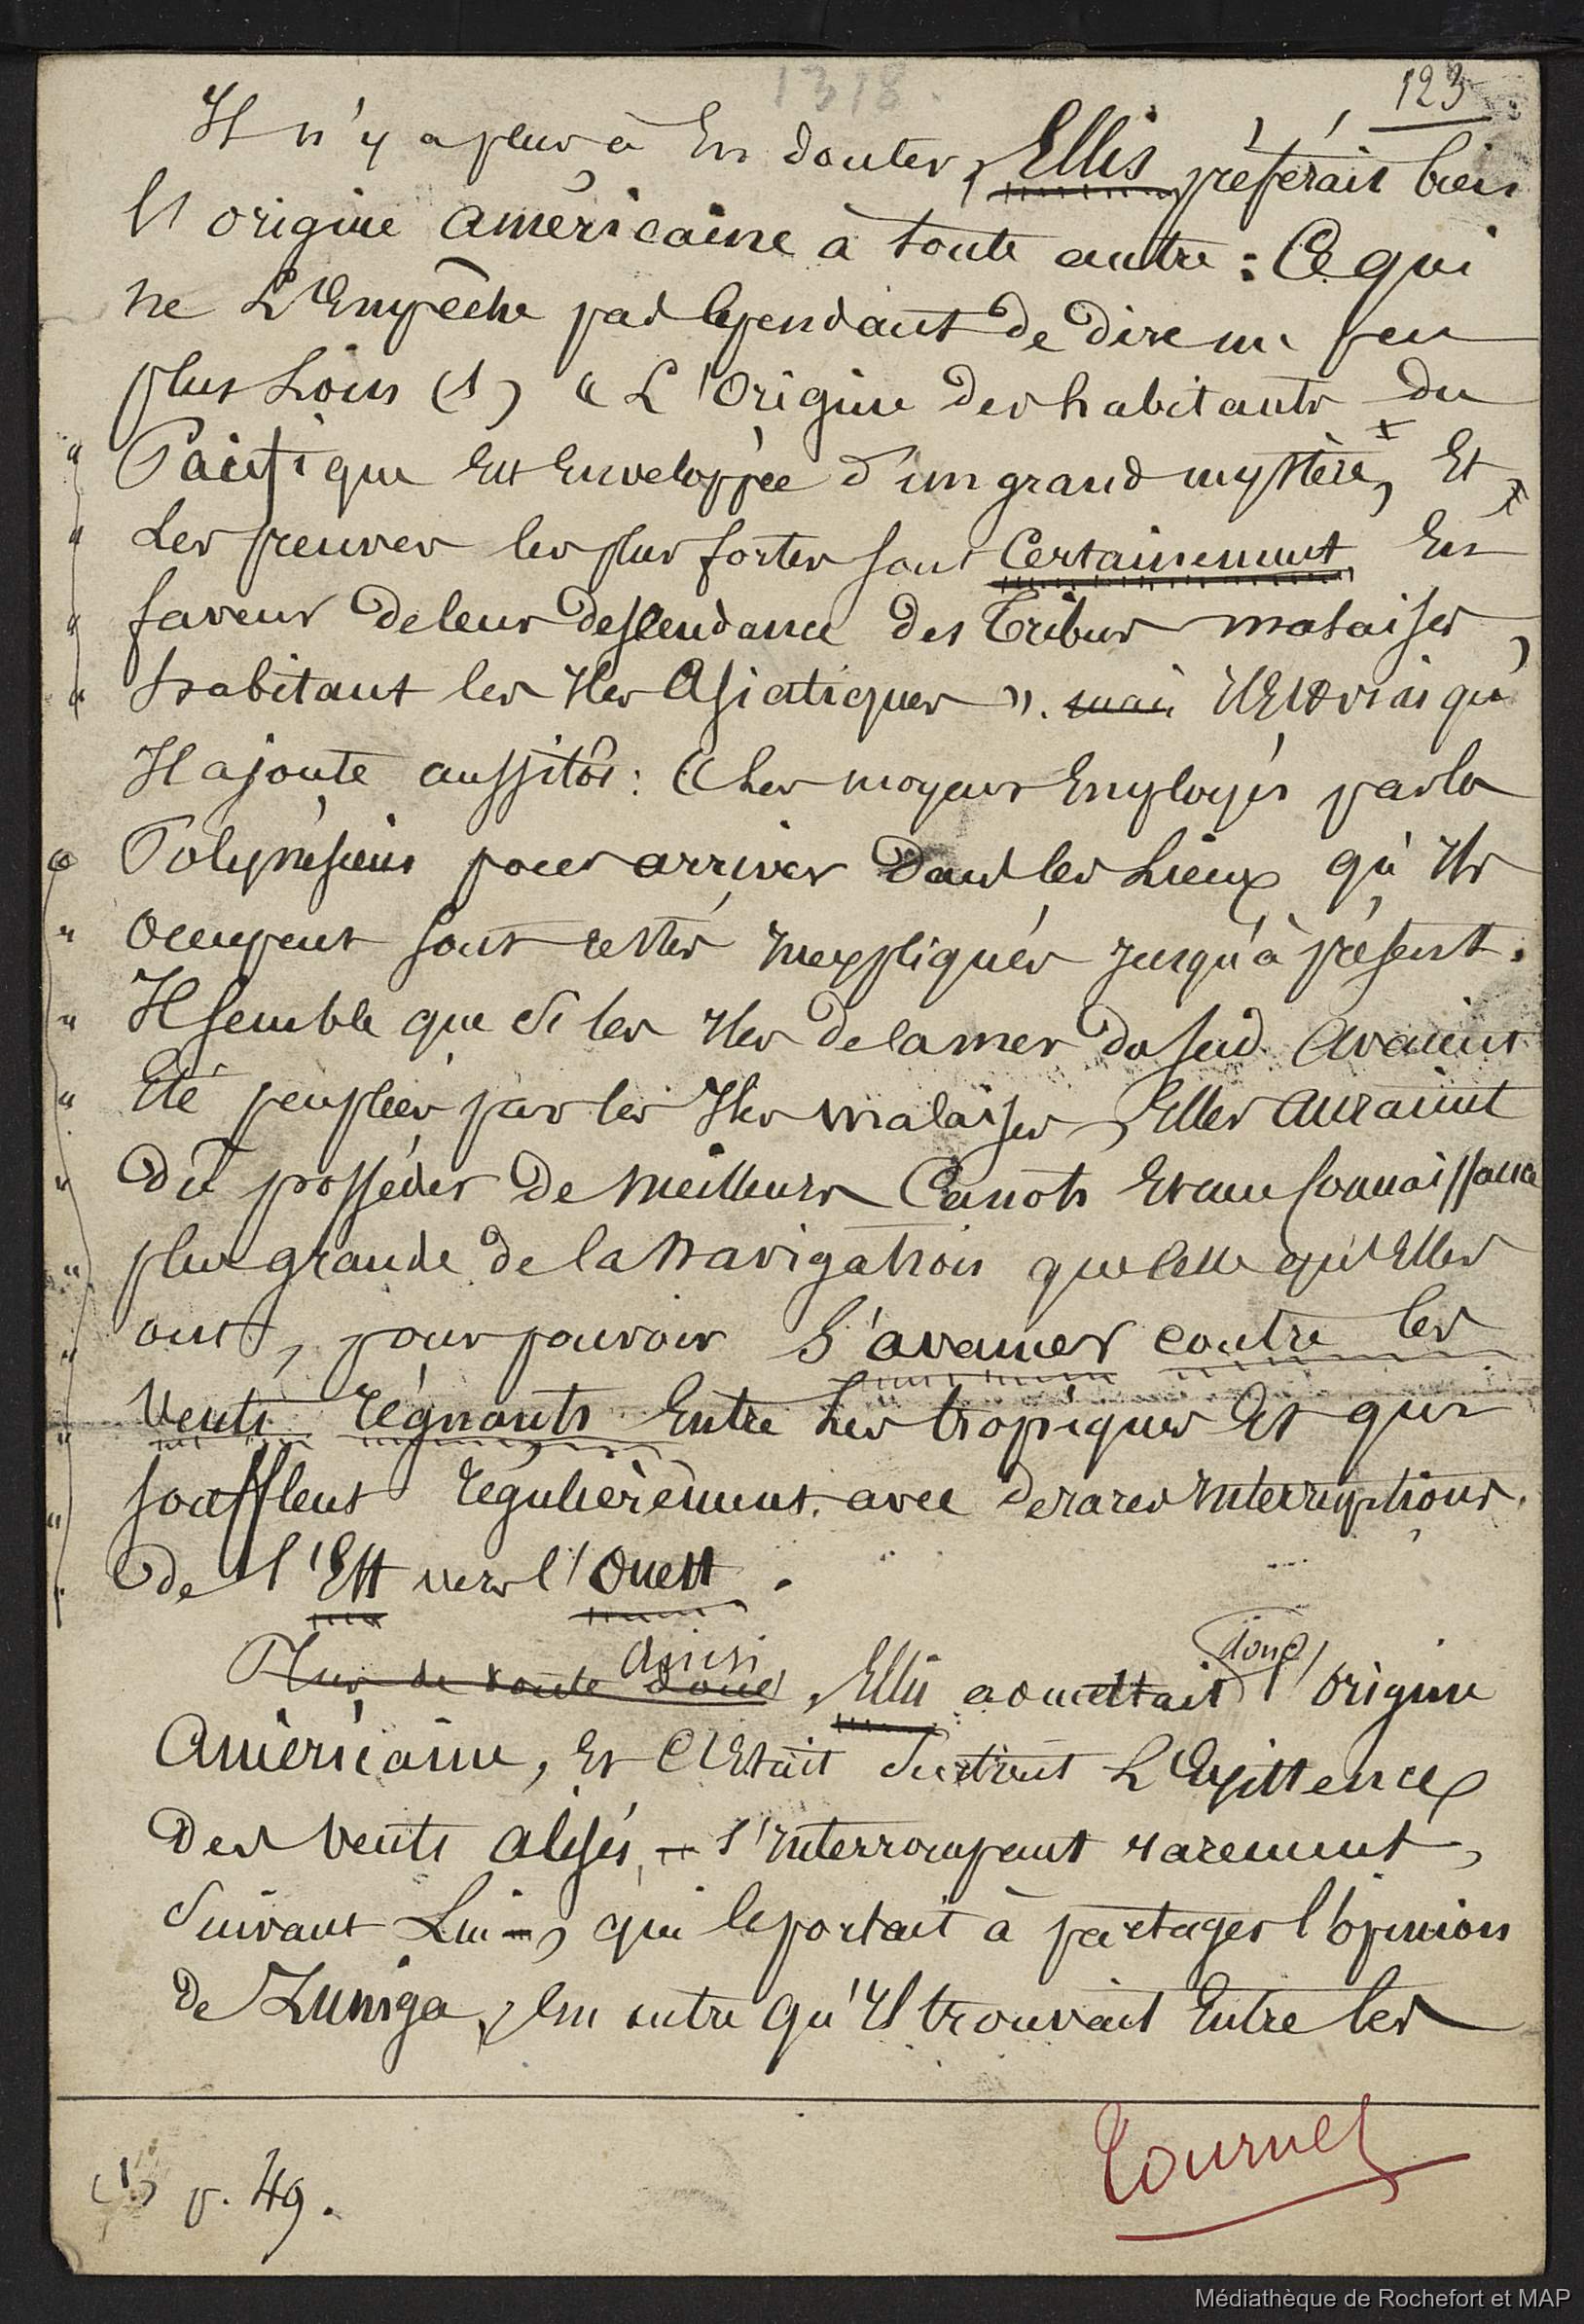 1318.
123
Il n'y a plus à en douter, Ellis préférait bien
l'origine américaine à toute autre : Ce qui
ne l'empêche pas cependant de dire un peu
plus loin (1) « L'origine des habitants du
" Pacifique est enveloppée d'un grand mystère, et
" les preuves les plus fortes sont certainement en
" faveur de leur descendance des tribus malaises,
" habitant les îles Asiatiques ». mais il est vrai qu'
Il ajoute aussitôt : « les moyens employés par les
« Polynésiens pour arriver dans les lieux qu'ils
" occupent sont restés inexpliqués jusqu'à présent.
" Il semble que si les îles de la mer du Sud avaient
" été peuplées par les îles malaises, elles auraient
" dû posséder de meilleurs canots et une connaissance
" plus grande de la navigation que celle qu'elles
" ont, pour pouvoir s'avancer contre les
" vents régnants entre les tropiques et qui
" soufflent régulièrement, avec de rares interruptions,
" de l'Est vers l'Ouest.
Ainsi donc
Plus de doute donc, Ellis admettait l'origine
Américaine, et c'était surtout l'existence
des vents alisés, - s'interrompant rarement,
suivant lui -, qui le portait à partager l'opinion
de Zuniga, en outre qu'il trouvait entre les
(1) p. 49.
Tournez